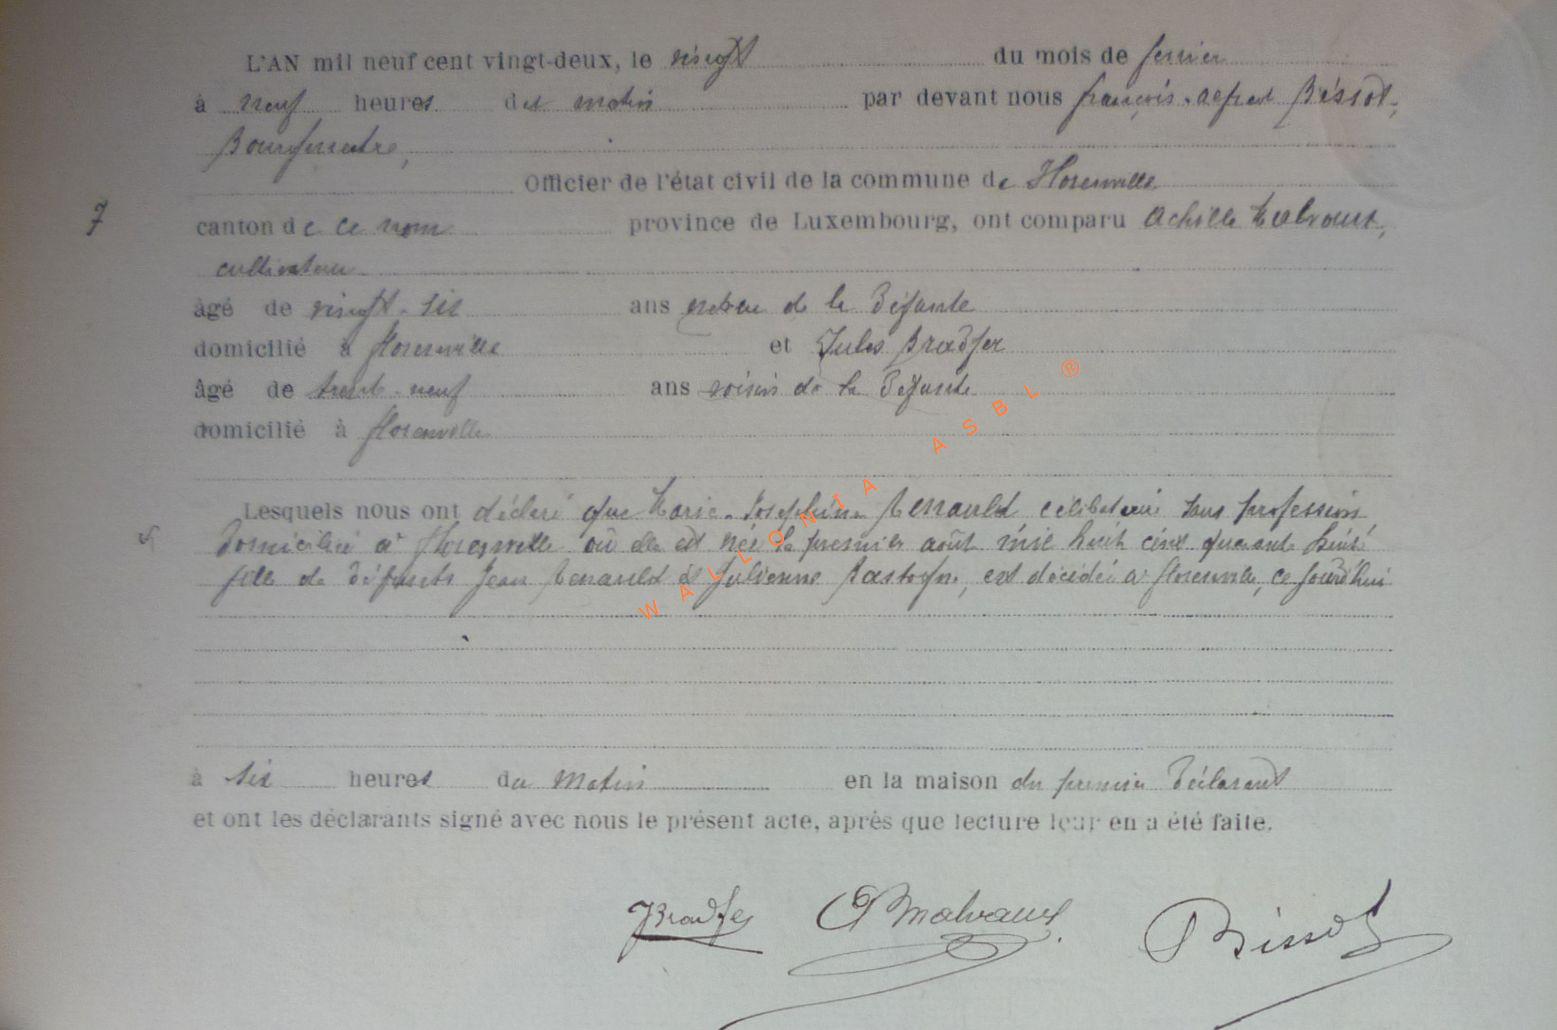 L'AN mil neuf cent vingt-deux, le vingt du mois de février
à neuf heures du matin par devant nous françois-alfred Bissot,
Bourgmestre,
Officier de l'état civil de la commune de Florenville
7 canton de ce nom province de Luxembourg, ont comparu Achille Malvaux,
cultivateur
âgé de vingt-six ans neveu de la défunte
domicilié à florenville et Jules Bradfer
âgé de trente-neuf ans voisin de la défunte
domicilié à florenville
Lesquels nous ont déclaré que Marie-Joséphine Renauld célibataire sans profession,
domiciliée à florenville où elle est née le premier août mil huit cent quarante huit
fille de défunts Jean Renauld et Julienne Bastogne, est décédée à florenville, ce jourd'hui
à six heures du matin en la maison du premier déclarant
et ont les déclarants signé avec nous le présent acte, après que lecture leur en a été faite.
JBradfer AMalvaux Bissot
WALLONIA ASBL ®